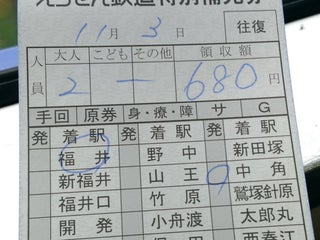 えちぜん鉄道特別補充券
11月3日 往復
人員 大人 こども その他 領収額
2 ― 680円
手回 原券 身・療・障 サ G
発 着駅 発 着駅 発 着駅
福井 野中 新田塚
新福井 山王 中角
福井口 竹原 鷲塚針原
開発 小舟渡 太郎丸
西春江